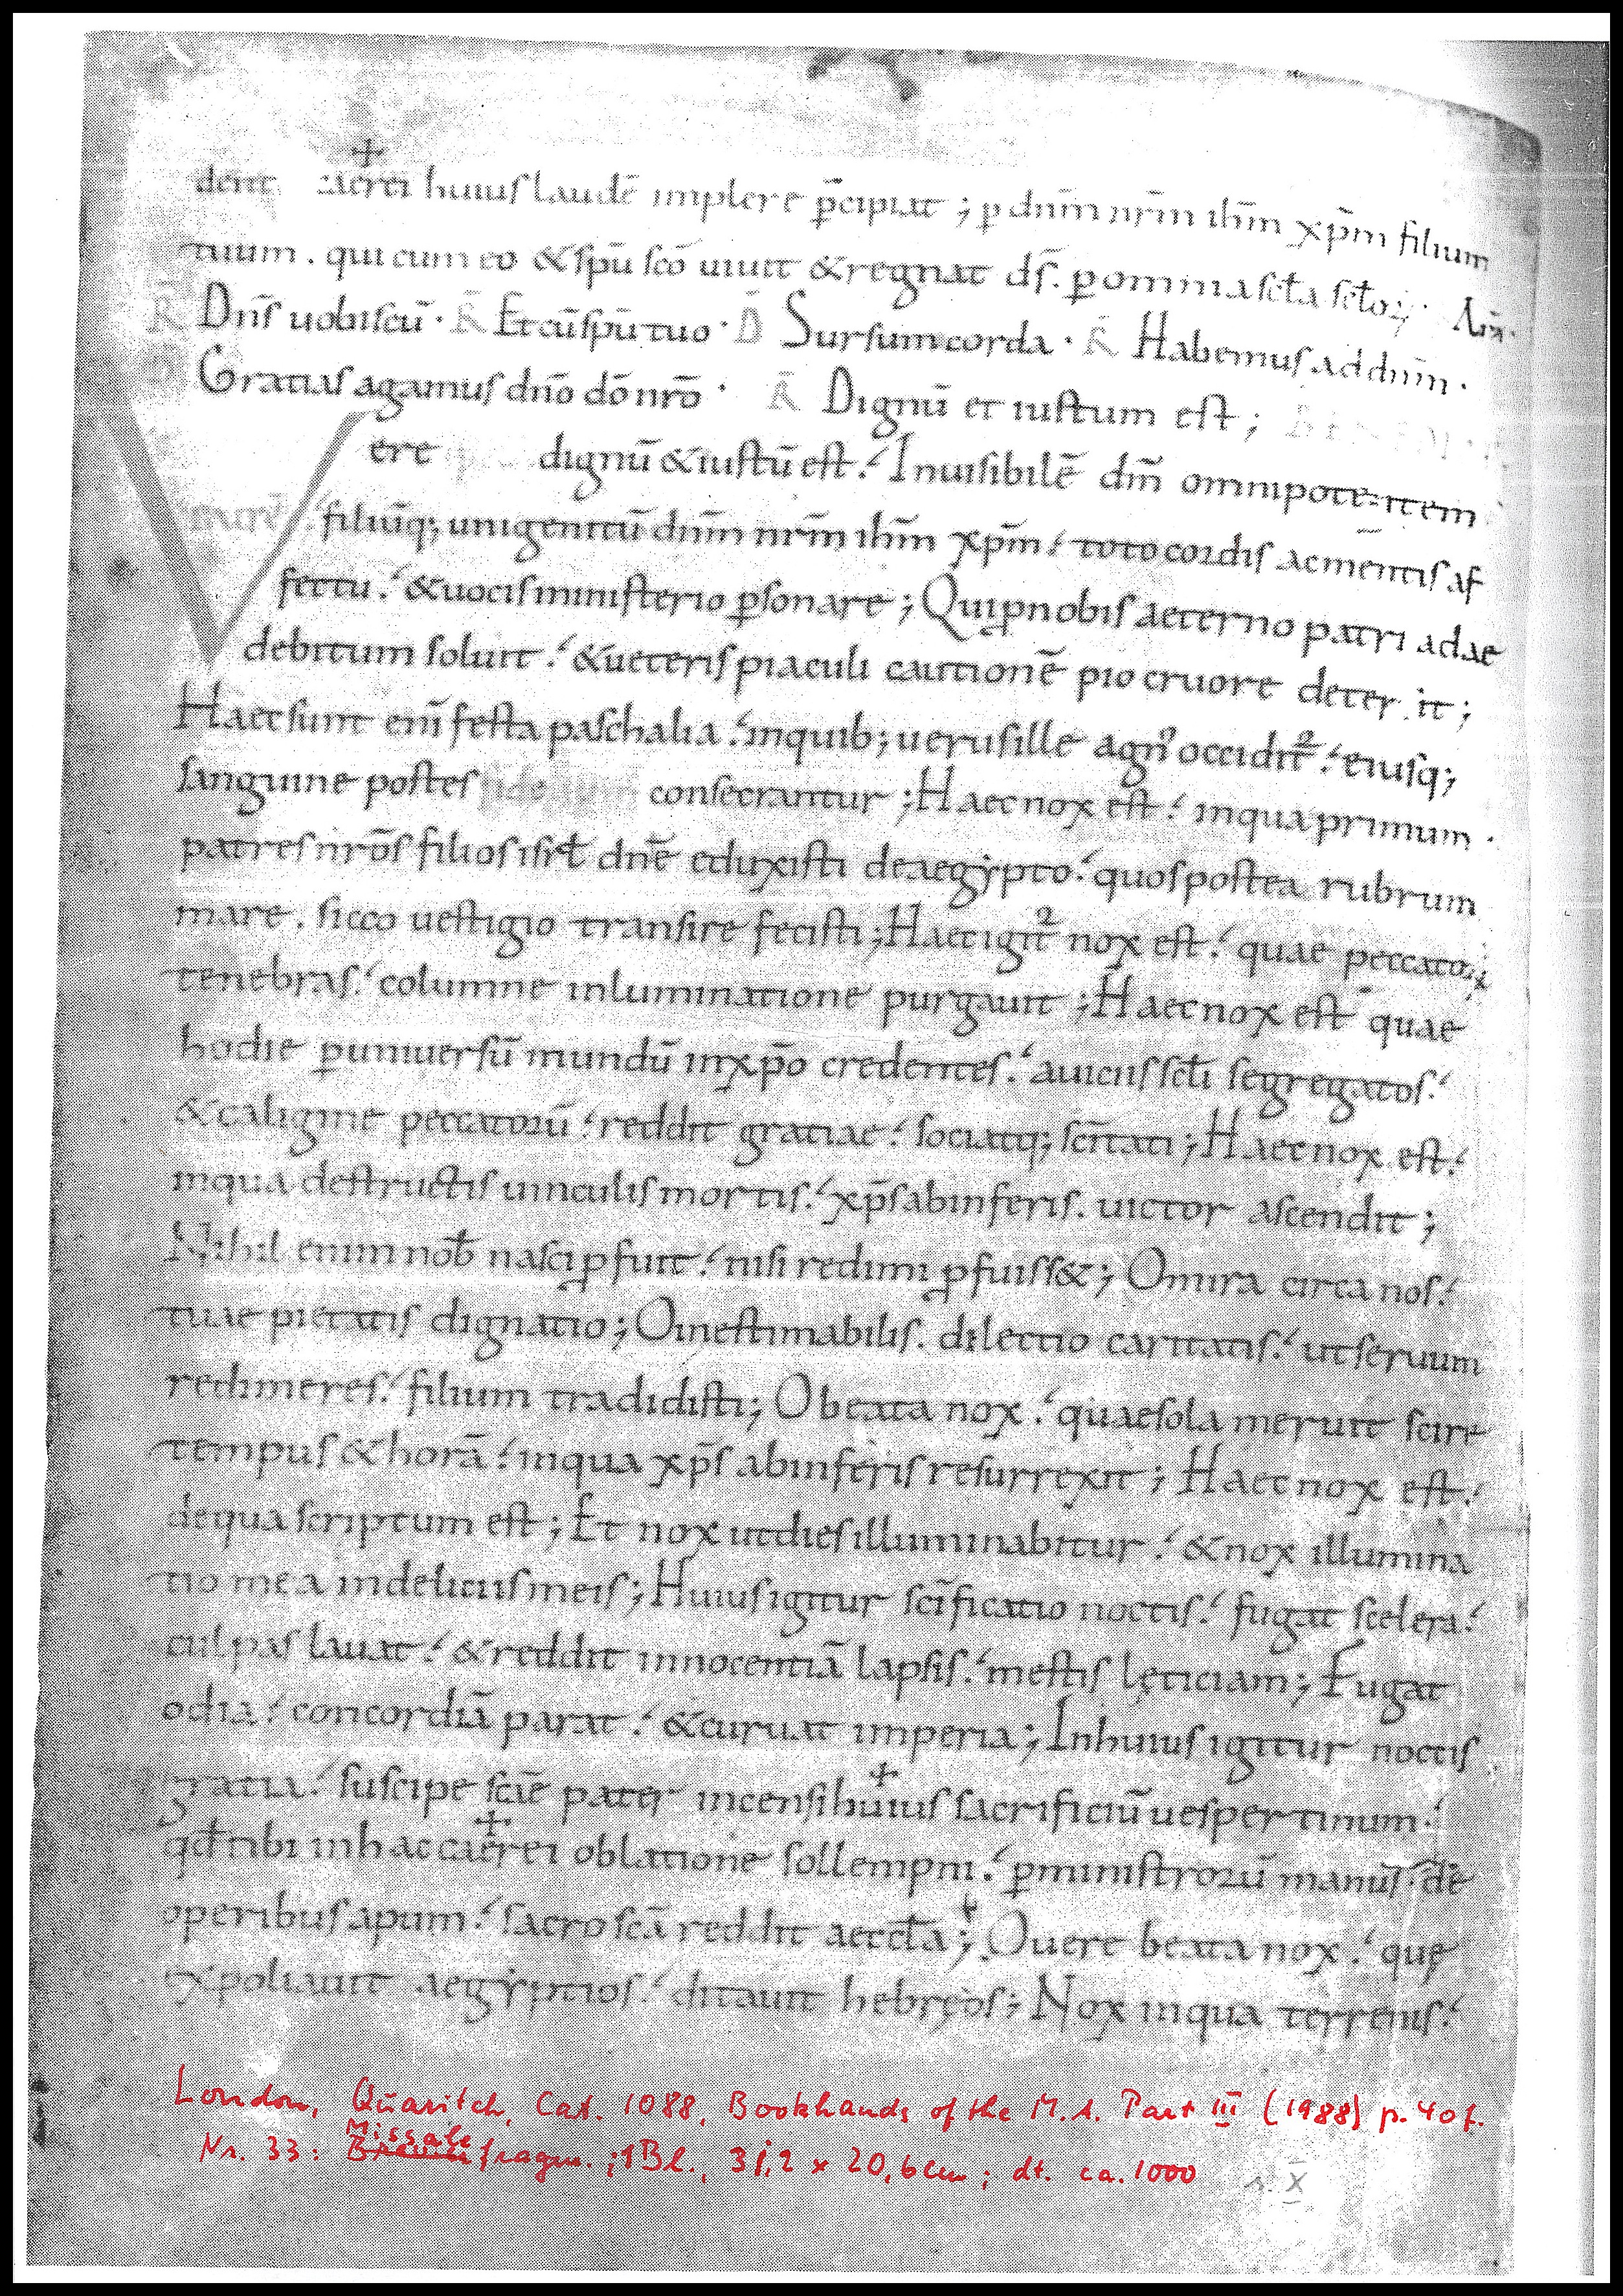 dens caerei huiuſ laudē implere p̄cipiat ; ꝑ dnm̄ nrm̄ ihm̄ xp̄m filium
tuum . qui cum eo & ſpū ſcō uiuit & regnat dſ̄ . ꝑ omnia ſcła ſcłoꝝ · Am̄ .
R̄ Dnſ̄ uobiſcū · R̄ Et cū ſpū tuo · D̄ Surſum corda · R̄ Habemuſ ad dnm̄ ·
Gratiaſ agamuſ dnō dō nrō · R̄ Dignū et iuſtum eſt ;
Vere dignū & iuſtū eſt . Inuiſibilē dm̄ omnipotentem
patrē . filiūq; unigenitū dnm̄ nrm̄ ihm̄ xp̄m . toto cordiſ ac mentiſ af
fectu . & uociſ miniſterio ꝑſonare ; Qui ꝓ nobiſ aeterno patri adae
debitum ſoluit . & ueteriſ piaculi cautionē pio cruore deterſit ;
Haec ſunt enī feſta paſchalia . in quib; ueruſ ille agn᾽ occidit² . eiuſq;
ſanguine poſteſ fidelium conſecrantur ; Haec nox eſt . in qua primum ·
patreſ nrōſ filioſ iſrł dnē eduxiſti de aegẏpto . quoſ poſtea rubrum
mare . ſicco ueſtigio tranſire feciſti ; Haec igit² nox eſt . quae peccatoꝝ
tenebraſ . columne inluminatione purgauit ; Haec nox eſt quae
hodie ꝑ uniuerſū mundū in xp̄o credenteſ . a uiciiſ ſcłi ſegregatoſ .
& caligine peccatorū . reddit gratiae . ſociatq; ſcītati ; Haec nox eſt .
in qua deſtructiſ uinculiſ mortiſ . xp̄ſ ab inferiſ . uictor aſcendit ;
Nihil enim nob̄ naſci ꝓfuit . niſi redimi ꝓfuiſſ& ; O mira circa noſ .
tuae pietatiſ dignatio ; O ineſtimabiliſ . dilectio caritatiſ . ut ſeruum
redimereſ . filium tradidiſti ; O beata nox . quae ſola meruit ſcire
tempuſ & horā . in qua xp̄ſ ab inferiſ reſurrexit ; Haec nox eſt .
de qua ſcriptum eſt ; Et nox ut dieſ illuminabitur . & nox illumina
tio mea in deliciiſ meiſ ; Huiuſ igitur ſcīficatio noctiſ . fugat ſcelera .
culpaſ lauat . & reddit innocentiā lapſiſ . meſtiſ lęticiam ; Fugat
odia . concordiā parat . & curuat imperia ; In huiuſ igitur noctiſ
gratia . ſuſcipe ſcē pater incenſi huiuſ ſacrificiū ueſpertinum .
qđ tibi in hac caerei oblatione ſollempni . ꝑ miniſtrorū manuſ . de
operibuſ apum . ſacroſcā reddit aeccła ; O uere beata nox . quę
expoliauit aegẏptioſ . ditauit hebręoſ ; Nox in qua terreniſ .
London, Quaritch, Cat. 1088, Bookhands of the M.A. Part III (1988) p. 40f.
Nr. 33: Missale fragm.; 1 Bl., 31,2 x 20,6 cm; dt. ca. 1000 s. X